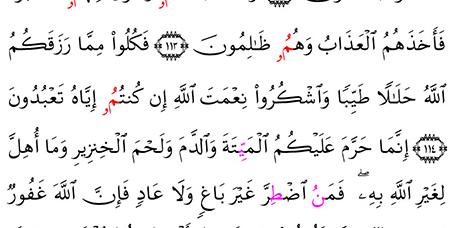 فَأَخَذَهُمُ ٱلْعَذَابُ وَهُمُۥ ظَٰلِمُونَ ۝١١٣ فَكُلُوا۟ مِمَّا رَزَقَكُمُ
ٱللَّهُ حَلَٰلًا طَيِّبًا وَٱشْكُرُوا۟ نِعْمَتَ ٱللَّهِ إِن كُنتُمُۥ إِيَّاهُ تَعْبُدُونَ
۝١١٤ إِنَّمَا حَرَّمَ عَلَيْكُمُ ٱلْمَيِّتَةَ وَٱلدَّمَ وَلَحْمَ ٱلْخِنزِيرِ وَمَا أُهِلَّ
لِغَيْرِ ٱللَّهِ بِهِۦۖ فَمَنُ ٱضْطِرَّ غَيْرَ بَاغٍ وَلَا عَادٍ فَإِنَّ ٱللَّهَ غَفُورٌ